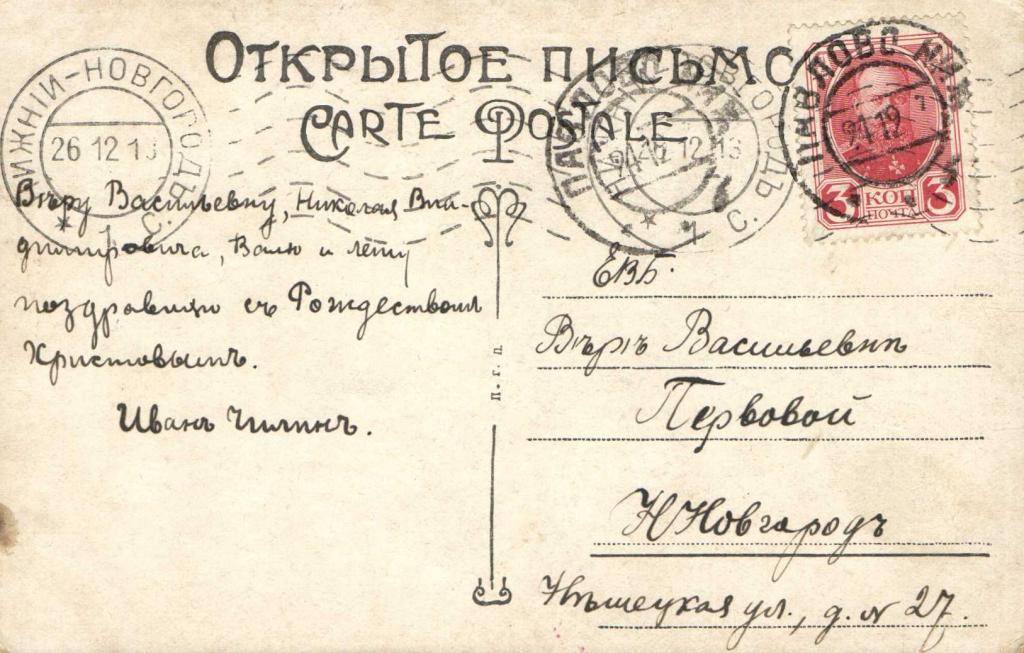 ОТКРЫТОЕ ПИСЬМО
CARTE POSTALE
НИЖНИЙ-НОВГОРОДЪ
26 12 13
С.
ПАВЛОВО НИЖ
24 12
3 КОП 3
ПОЧТА
Вѣру Васильевну, Николая Вла-
димировича, Валю и лёлю
поздравляю съ Рождествомъ
Христовымъ.
Иванъ Чилинъ.
п. г. п.
ЕВБ.
Вѣрѣ Васильевнѣ
Первовой
Н Новгородъ
ул., д. № 27.